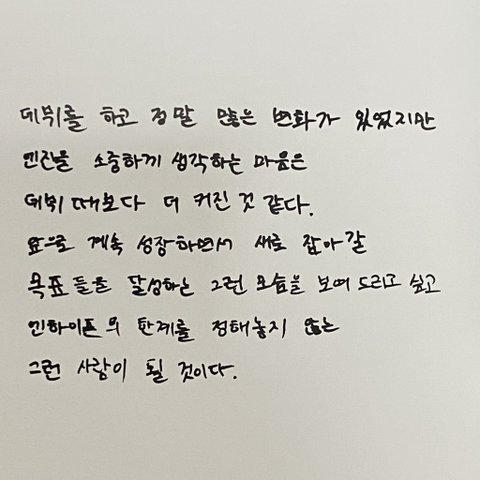 데뷔를 하고 정말 많은 변화가 있었지만
엔진을 소중하게 생각하는 마음은
데뷔 때보다 더 커진 것 같다.
앞으로 계속 성장하면서 새로 잡아갈
목표들을 달성하는 그런 모습을 보여 드리고 싶고
엔하이픈의 한계를 정해놓지 않는
그런 사람이 될 것이다.